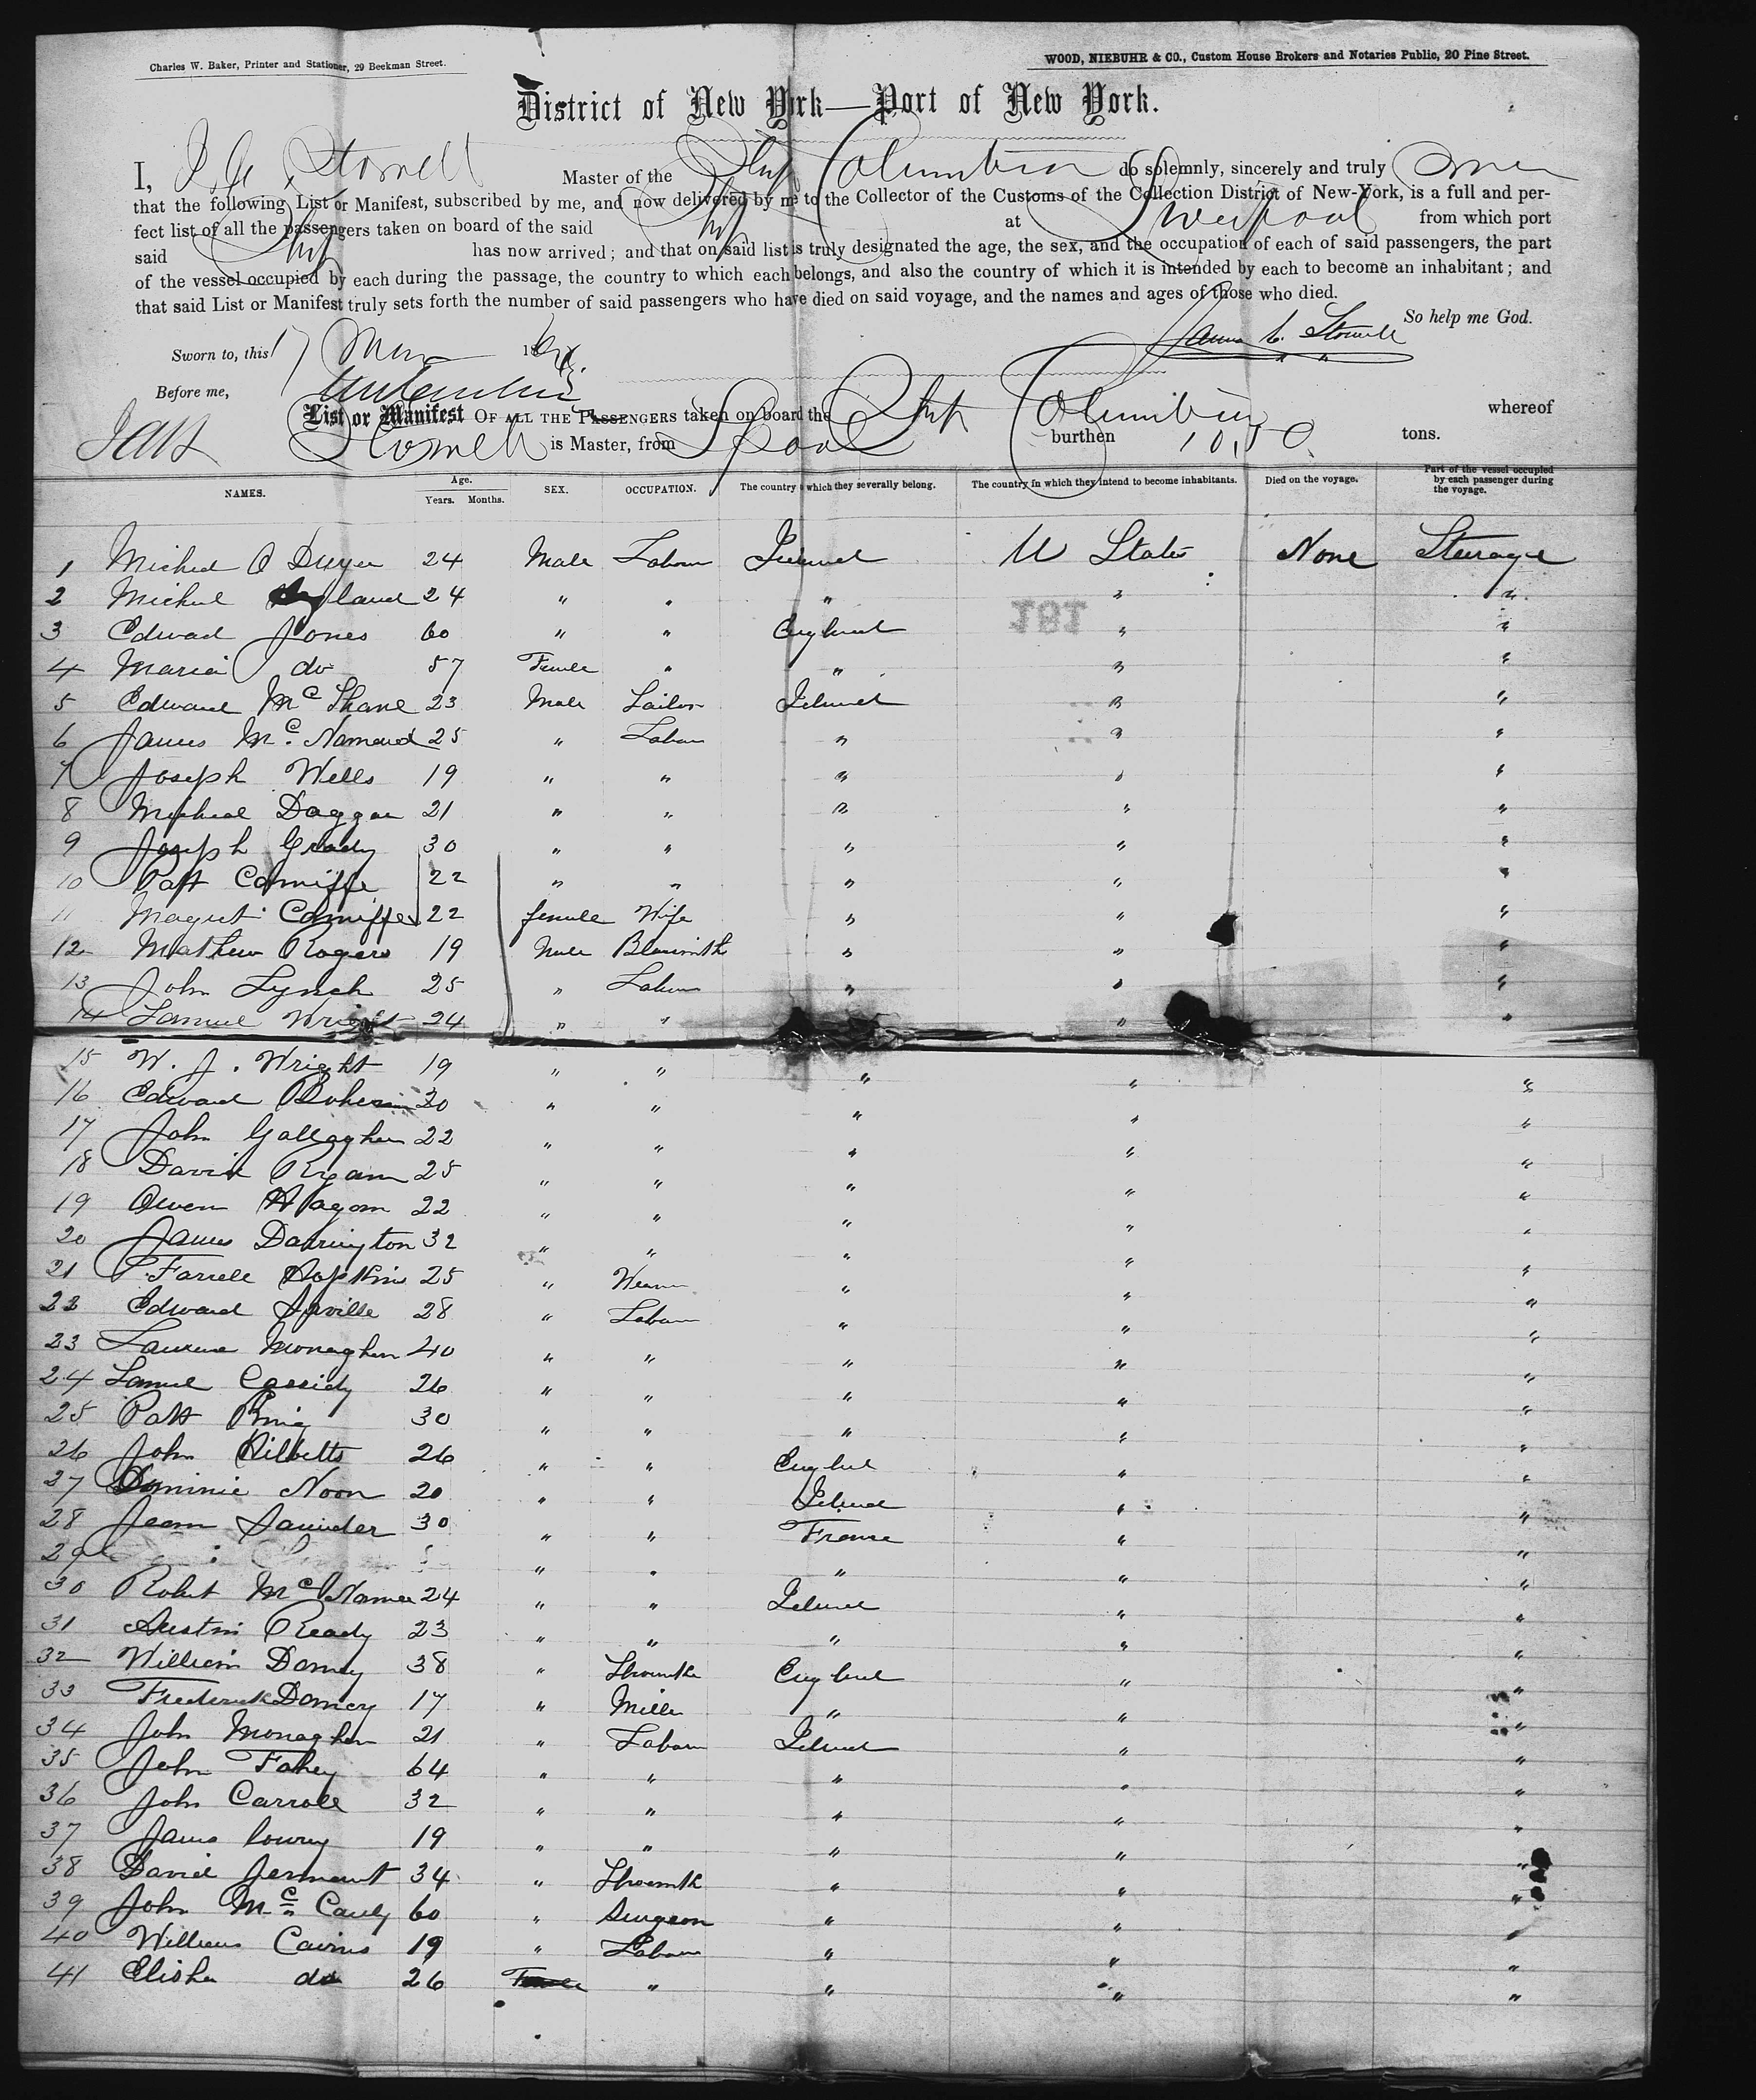 Charles W. Baker, Printer and Stationer, 29 Beekman Street.
WOOD, NIEBUHR & CO., Custom House Brokers and Notaries Public, 20 Pine Street.
District of New York—Port of New York.
I, Master of the Ship Columbia do solemnly, sincerely and truly
that the following List or Manifest, subscribed by me, and now delivered by me to the Collector of the Customs of the Collection District of New-York, is a full and per-
fect list of all the passengers taken on board of the said Ship at Liverpool from which port
said Ship has now arrived; and that on said list is truly designated the age, the sex, and the occupation of each of said passengers, the part
of the vessel occupied by each during the passage, the country to which each belongs, and also the country of which it is intended by each to become an inhabitant; and
that said List or Manifest truly sets forth the number of said passengers who have died on said voyage, and the names and ages of those who died.
So help me God.
Sworn to, this 17 18
Before me,
List or Manifest OF ALL THE PASSENGERS taken on board the Ship Columbia whereof
is Master, from LPool burthen 1050 tons.
NAMES. Age. Years. Months. SEX. OCCUPATION. The country to which they severally belong. The country in which they intend to become inhabitants. Died on the voyage. Part of the vessel occupied by each passenger during the voyage.
1 Michael O Dwyer 24 Male Labour Ireland U States None Steerage
2 Michael 24 " " " " "
3 Edward Jones 60 " " England " "
4 Maria do 57 Female " " " "
5 Edward McShane 23 Male Ireland " "
6 James McNamara 25 " Labour " " "
7 Joseph Wells 19 " " " " "
8 Michael 21 " " " " "
9 Joseph Grady 30 " " " " "
10 Patt 22 " " " " "
11 22 female Wife " " "
12 Mathew Rogers 19 Male " " "
13 John Lynch 25 " Labour " " "
14 Samuel Wright 24 " " " "
15 W. J. Wright 19 " " " " "
16 Edward 30 " " " " "
17 John Gallagher 22 " " " " "
18 David Ryan 25 " " " " "
19 Owen Hagan 22 " " " " "
20 James Darrington 32 " " " " "
21 Hopkins 25 " Weaver " " "
22 Edward 28 " Labour " " "
23 Laurence Monaghan 40 " " " " "
24 Samuel Cassidy 26 " " " " "
25 Patt King 30 " " " " "
26 John 26 " " England " "
27 Dominic Noon 20 " " Ireland " "
28 30 " " France " "
29 " " " " "
30 Robert 24 " " Ireland " "
31 Austin Ready 23 " " " " "
32 William 38 " England " "
33 Frederick 17 " Miller " " "
34 John Monaghan 21 " Labour Ireland " "
35 John Fahey 64 " " " " "
36 John Carroll 32 " " " " "
37 James Lowry 19 " " " " "
38 David 34 " " " "
39 John McCauly 60 " Surgeon " " "
40 William Cairns 19 " Labour " " "
41 Elisha do 26 " " " "